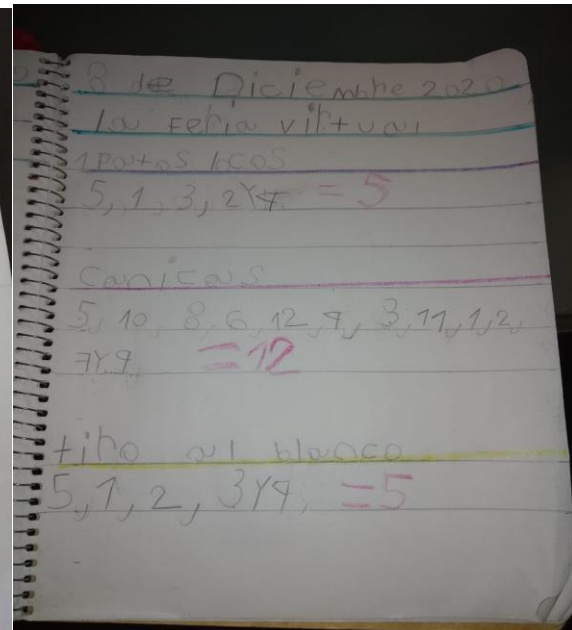 8 de Diciembre 2020
La Feria virtual
1 patos locos
5, 1, 3, 2 Y 4. = 5
Canicas
5, 10, 8, 6, 12, 4, 3, 11, 1, 2,
7 Y 9. = 12
tiro al blanco
5, 1, 2, 3 Y 4. = 5